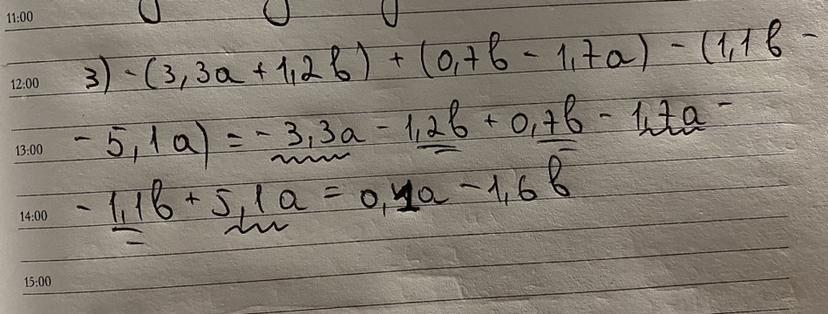 11:00
12:00 3) -(3,3a + 1,2b) + (0,7b - 1,7a) - (1,1b -
13:00 - 5,1a) = - 3,3a - 1,2b + 0,7b - 1,7a -
14:00 - 1,1b + 5,1a = 0,1a - 1,6b
15:00